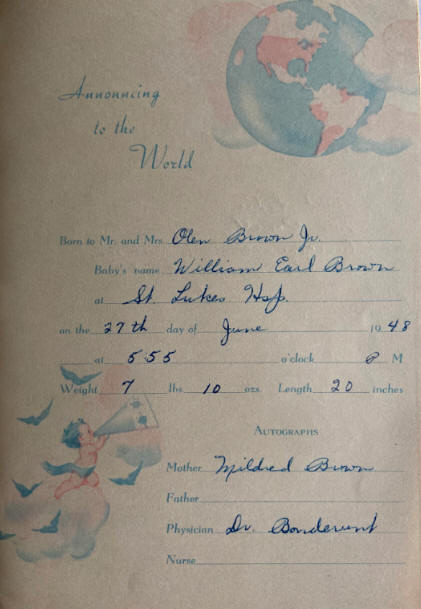 Announcing
to the
World
Born to Mr. and Mrs. Olen Brown Jr.
Baby's name William Earl Brown
at St Lukes Hsp.
on the 27th day of June 1948
at 5:55 o'clock P M
Weight 7 lbs. 10 ozs. Length 20 inches
AUTOGRAPHS
Mother Mildred Brown
Father
Physician Dr. Bondurant
Nurse